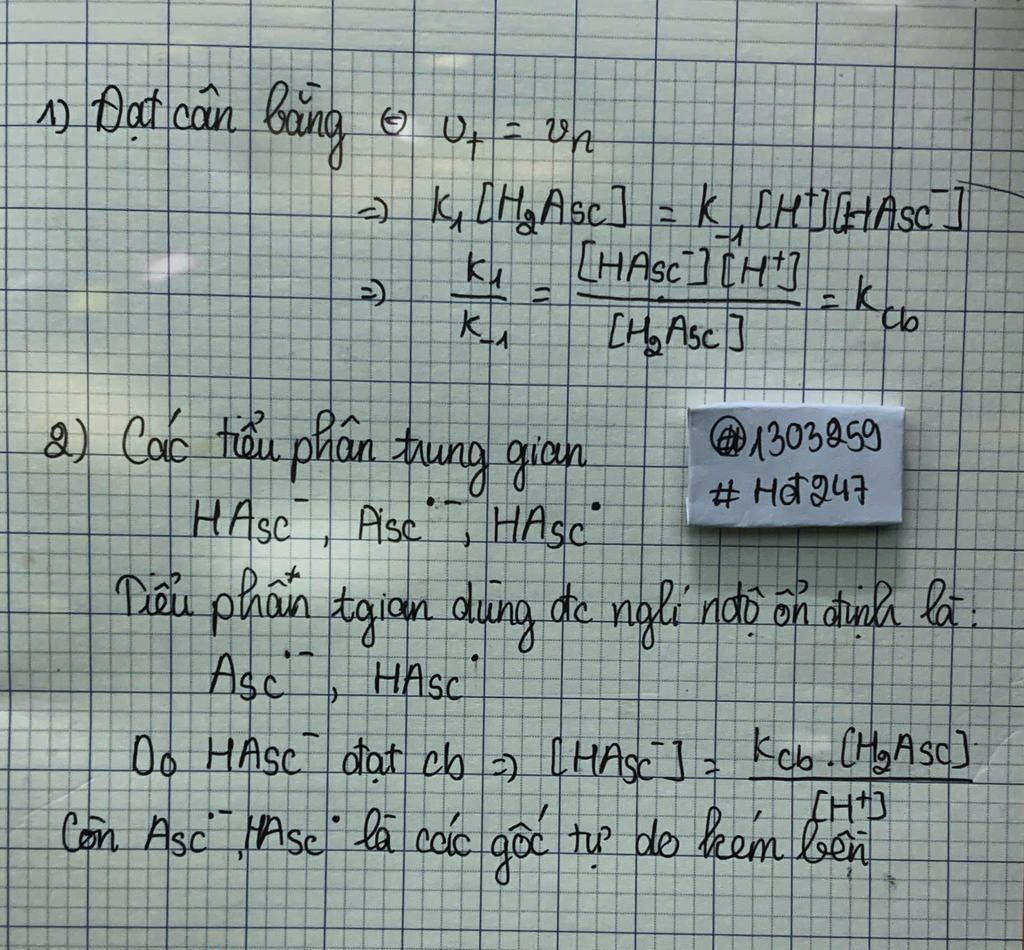 1) Đạt cân bằng ⇔ v_t = v_n
⇒ K₁[H₂Asc] = K₋₁[H⁺][HAsc⁻]
⇒ K₁/K₋₁ = [HAsc⁻][H⁺]/[H₂Asc] = K_cb
2) Các tiểu phân trung gian
HAsc⁻, Asc•⁻, HAsc•
@1303259
# Hđ247
Tiểu phân tgian dùng đc nglí nđộ ổn định là:
Asc•⁻, HAsc•
Do HAsc⁻ đạt cb ⇒ [HAsc⁻] = K_cb.[H₂Asc]/[H⁺]
Còn Asc•⁻, HAsc• là các gốc tự do kém bền